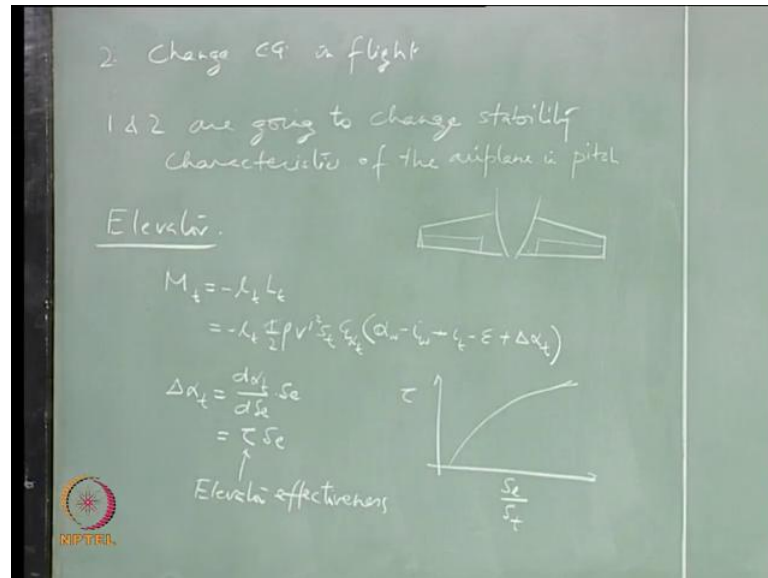 2. Change CG in flight
1 & 2 are going to change stability
characteristic of the airplane in pitch
Elevator.
M_t = -l_t L_t
= -l_t 1/2 ρ V'^2 S_t C_{Lα_t} (α_w - i_w + i_t - ε + Δα_t)
Δα_t = dα_t/dδe · δe
= τ δe
Elevator effectiveness
τ
Se/S_t
NPTEL